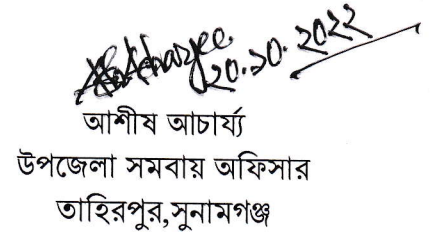 ২০.১০.২০২২
আশীষ আচার্য্য
উপজেলা সমবায় অফিসার
তাহিরপুর,সুনামগঞ্জ